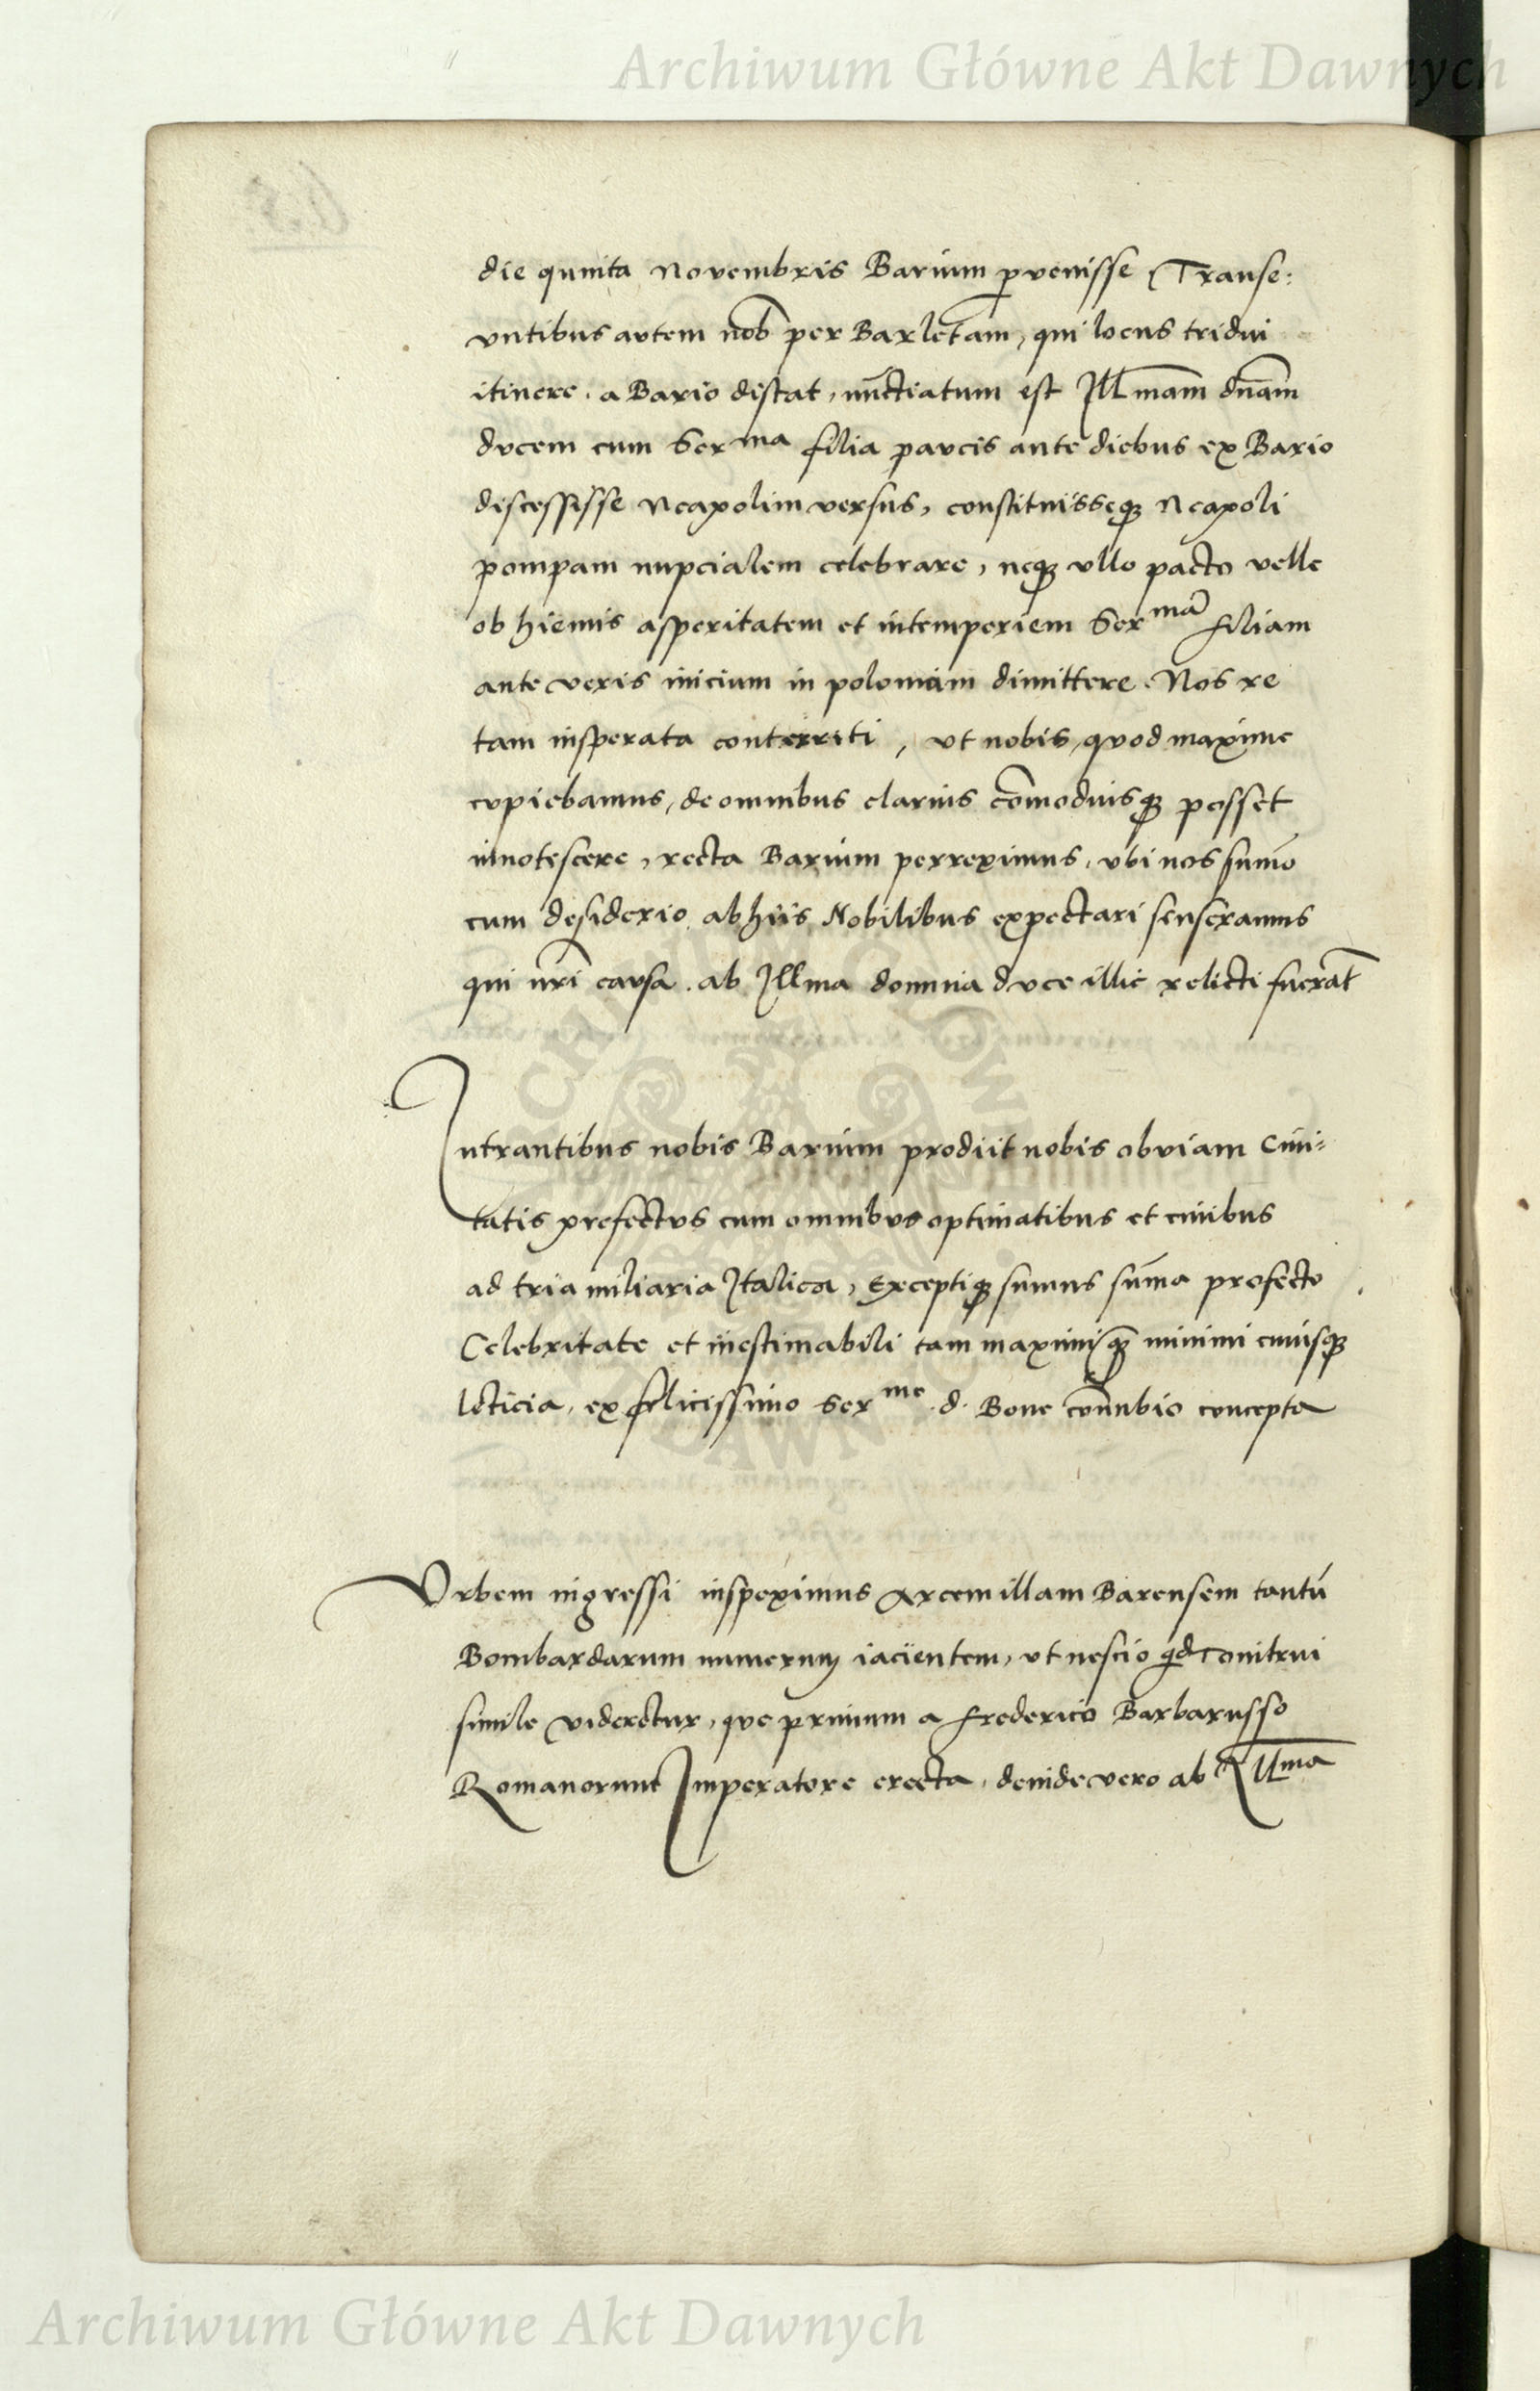 Archiwum Główne Akt Dawnych
die quinta novembris Barium pvenisse Transe:
vntibus avtem nob per Barletam, qui locus tridui
itinere. a Bario distat, nuctiatum est Jllmam dnam
dvcem cum Serma filia pavcis ante diebus ex Bario
discessisse Neapolim versus, constituisseq Neapoli
pompam nupcialem celebrare, neq vllo pacto velle
ob hiemis asperitatem et intemperiem Serma filiam
ante veris inicium in poloniam dimittere. Nos re
tam insperata conterriti, vt nobis, qvod maxime
cvpiebamus, de omnibus clarius comodiusq posset
innotescere, recta Barium perreximus, vbi nos sumo
cum desiderio ab hiis Nobilibus expectari senseramus
qui nri cavsa. ab Jllma domina dvce illic relicti fuerat
Intrantibus nobis Barium prodiit nobis obviam Ciui-
tatis prefectvs cum omnibvs optimatibus et ciuibus
ad tria miliaria Jtalica, Exceptiq sumus suma profecto
Celebritate et inestimabili tam maximi q minimi cuiusq
leticia, ex felicissimo Serme. d. Bone conubio concepta
Vrbem ingressi inspeximus Arcem illam Barensem tantu
Bombardarum numerum iacientem, vt nescio qd Tonitrui
simile videretur, que primum a Frederico Barbarusso
Romanorum Imperatore erecta, deinde vero ab Illma
ARCHIWUM GŁÓWNE AKT DAWNYCH
Archiwum Główne Akt Dawnych